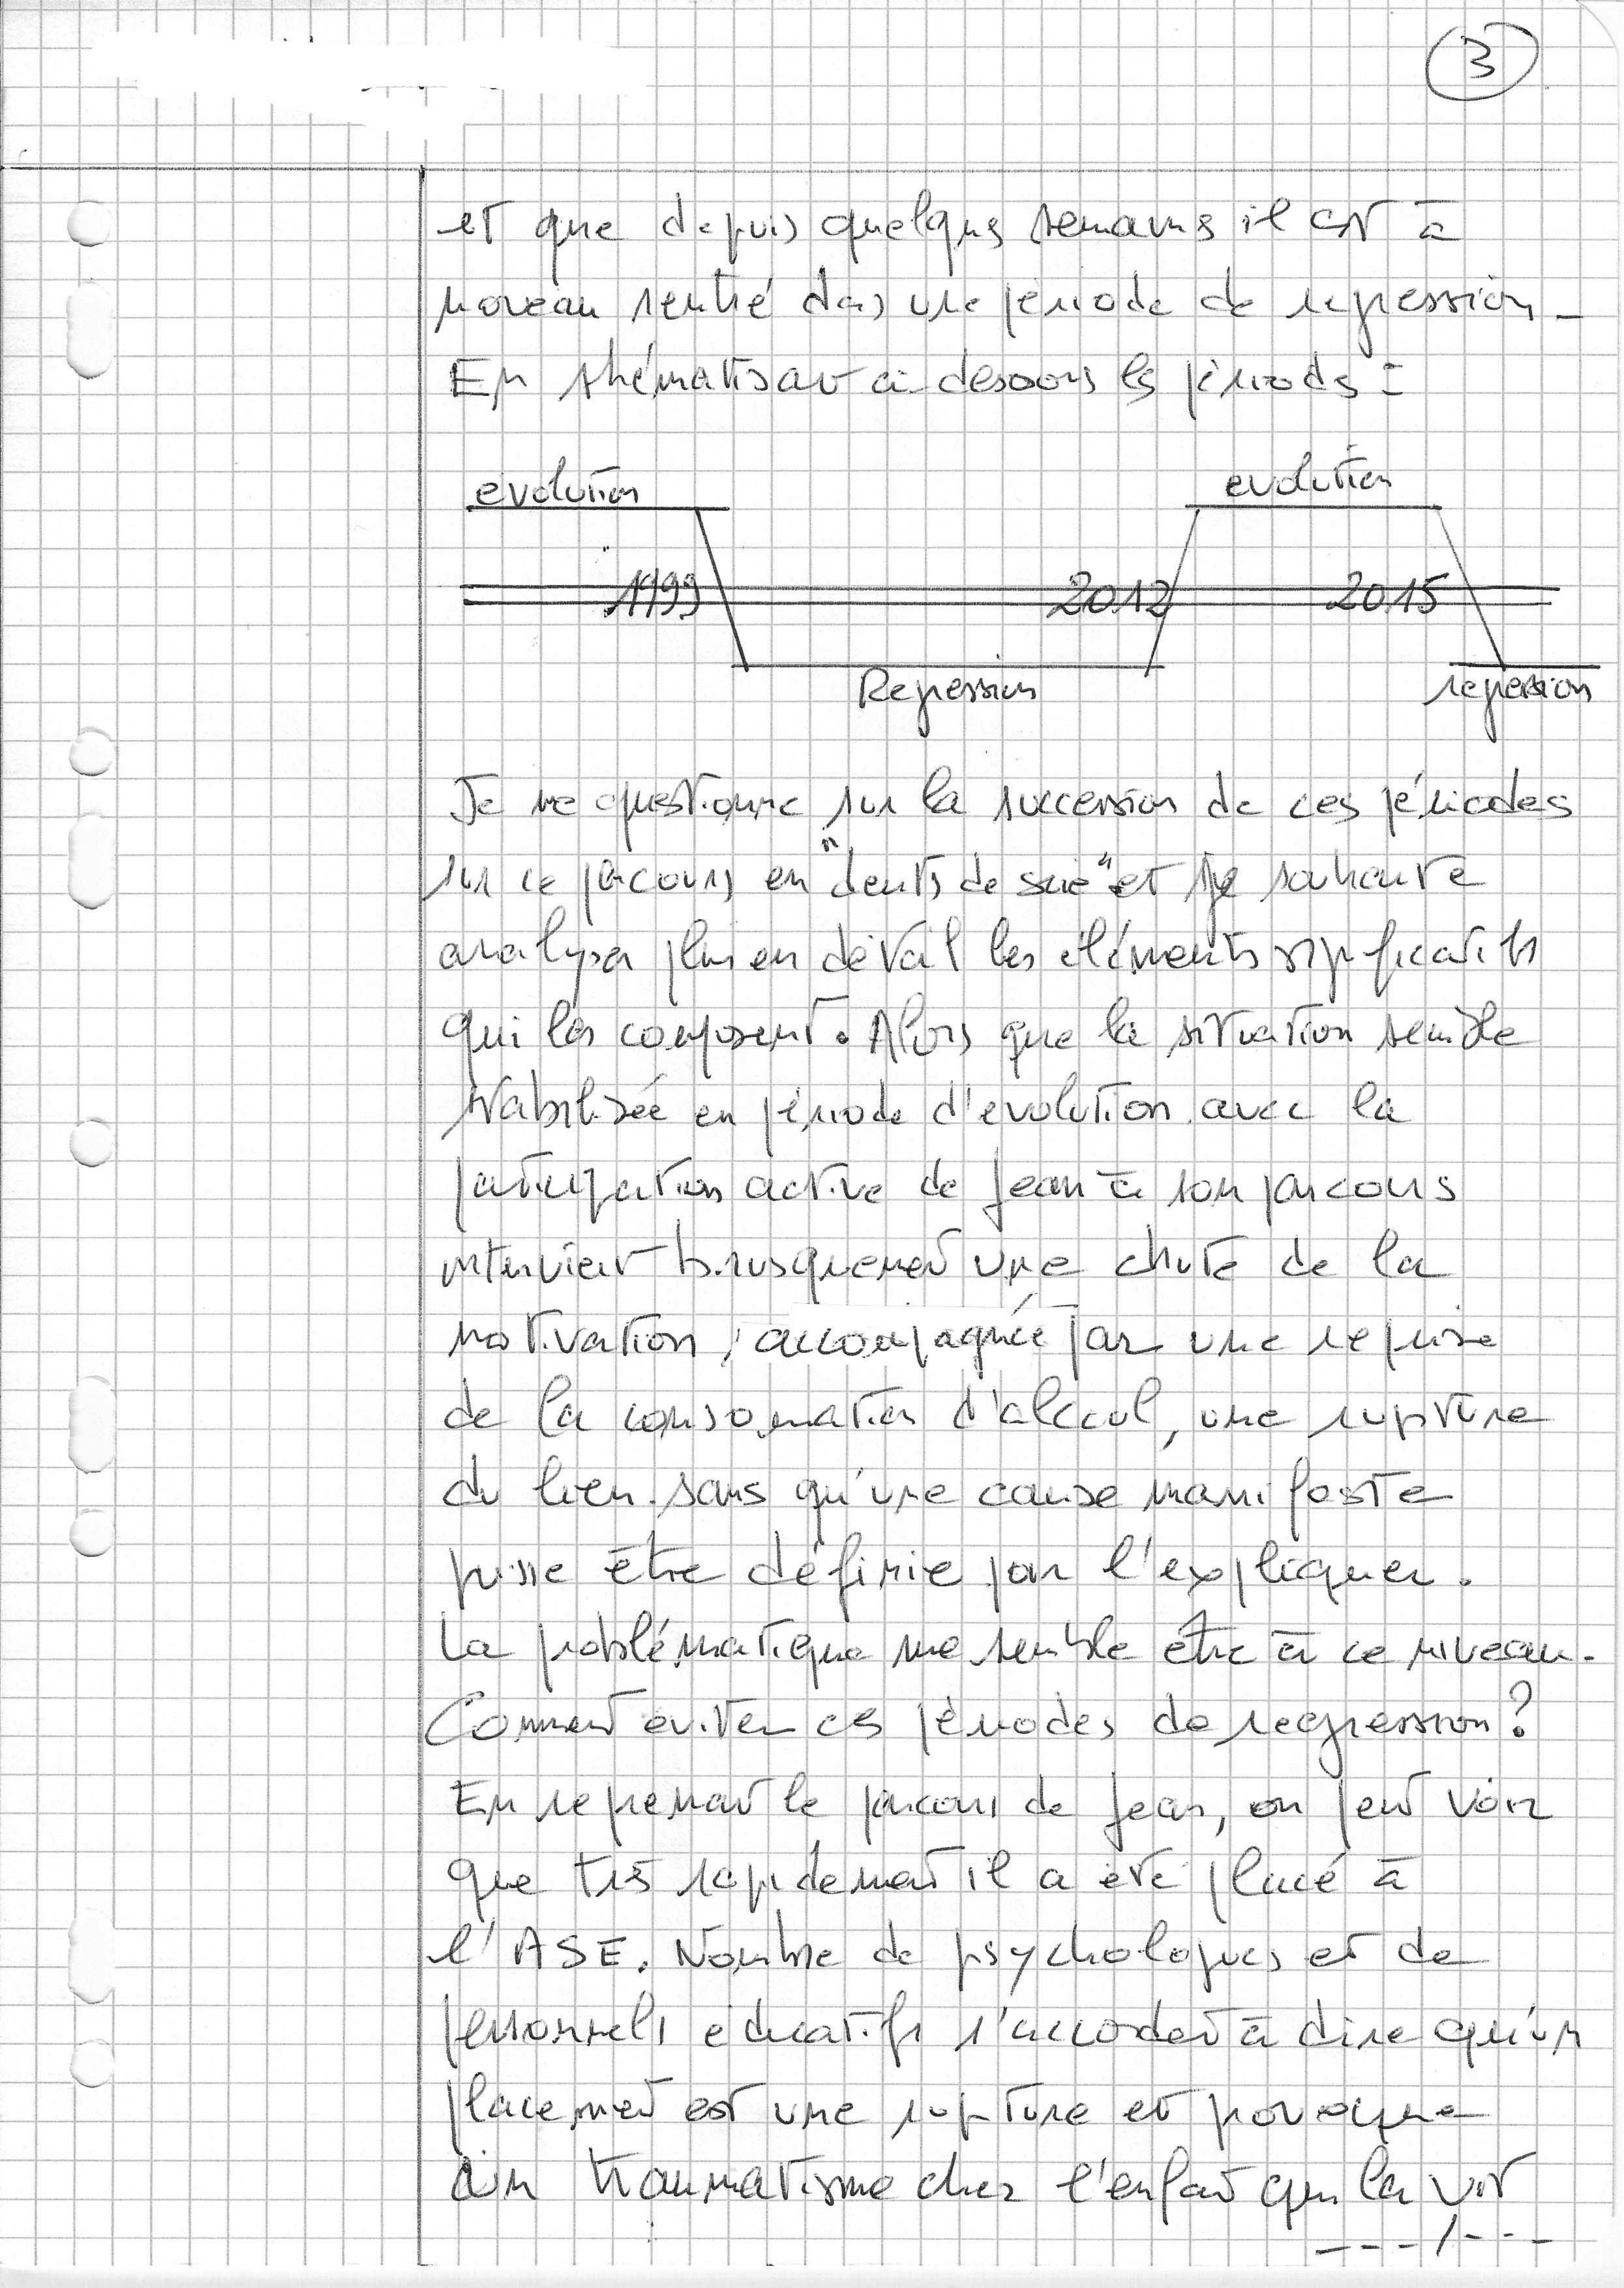 3
et que depuis quelques semaines il est à
nouveau rentré dans une période de regression_
En shématisant ci-dessous les périodes :
evolution evolution
1999 2012 2015
Regression regression
Je me questionne sur la succession de ces périodes
sur ce parcours en "dents de scie" et je souhaite
analyser plus en détail les éléments significatifs
qui les composent. Alors que la situation semble
stabilisée en période d'evolution avec la
participation active de Jean à son parcours
intervient brusquement une chute de la
motivation, accompagnée par une reprise
de la consomation d'alcool, une rupture
du lien sans qu'une cause manifeste
puisse être définie pour l'expliquer.
La problématique me semble être à ce niveau.
Comment eviter ces périodes de regression?
En reprenant le parcours de Jean, on peut voir
que très rapidement il a été placé à
l'ASE. Nombre de psychologues et de
personnels éducatifs s'accordent à dire qu'un
placement est une rupture et provoque
un traumatisme chez l'enfant qui la vit
---/---